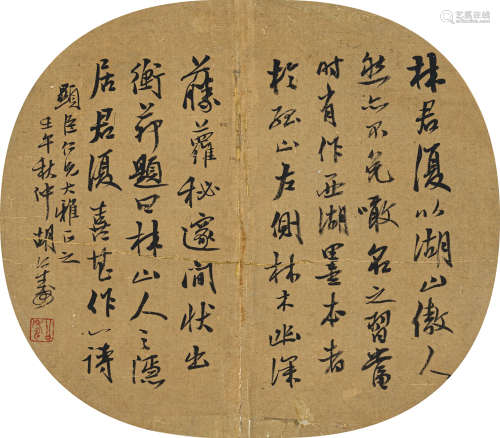 林君復以湖山傲人
然亦不免噉名之習當
時有作西湖墨本者
於孤山左側林木幽深
藤蘿秘邃間狀出
衡茆題曰林山人之隱
居君復喜甚作小詩
顕臣仁兄大雅正之
壬午秋仲胡公壽